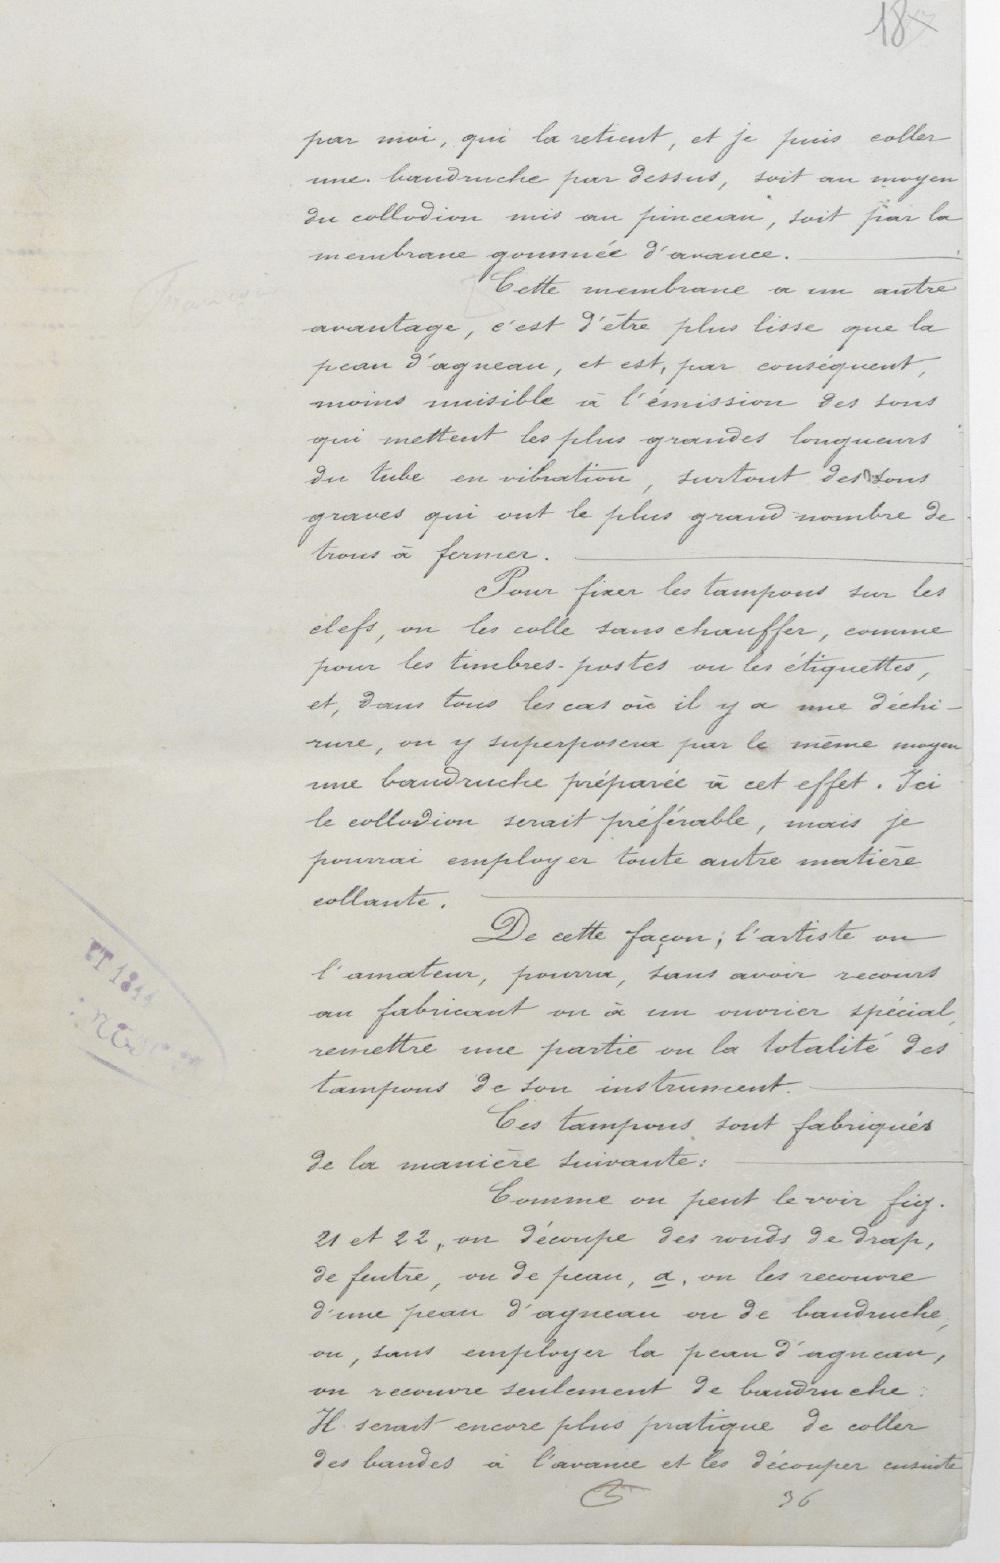 18
par moi, qui la retient, et je puis coller
une baudruche par dessus, soit au moyen
du collodion mis au pinceau, soit par la
membrane gommée d'avance.
Cette membrane a un autre
avantage, c'est d'être plus lisse que la
peau d'agneau, et est, par conséquent,
moins nuisible à l'émission des sons
qui mettent les plus grandes longueurs
du tube en vibration, surtout des sons
graves qui ont le plus grand nombre de
trous à fermer.
Pour fixer les tampons sur les
clefs, on les colle sans chauffer, comme
pour les timbres-postes ou les étiquettes,
et, dans tous les cas où il y a une déchi-
rure, on y superposera par le même moyen
une baudruche préparée à cet effet. Ici
le collodion serait préférable, mais je
pourrai employer toute autre matière
collante.
De cette façon; l'artiste ou
l'amateur, pourra, sans avoir recours
au fabricant ou à un ouvrier spécial,
remettre une partie ou la totalité des
tampons de son instrument.
Ces tampons sont fabriqués
de la manière suivante:
Comme on peut le voir fig.
21 et 22, on découpe des ronds de drap,
de feutre, ou de peau, a, on les recouvre
d'une peau d'agneau ou de baudruche,
ou, sans employer la peau d'agneau,
on recouvre seulement de baudruche.
Il serait encore plus pratique de coller
des bandes à l'avance et les découper ensuite
36